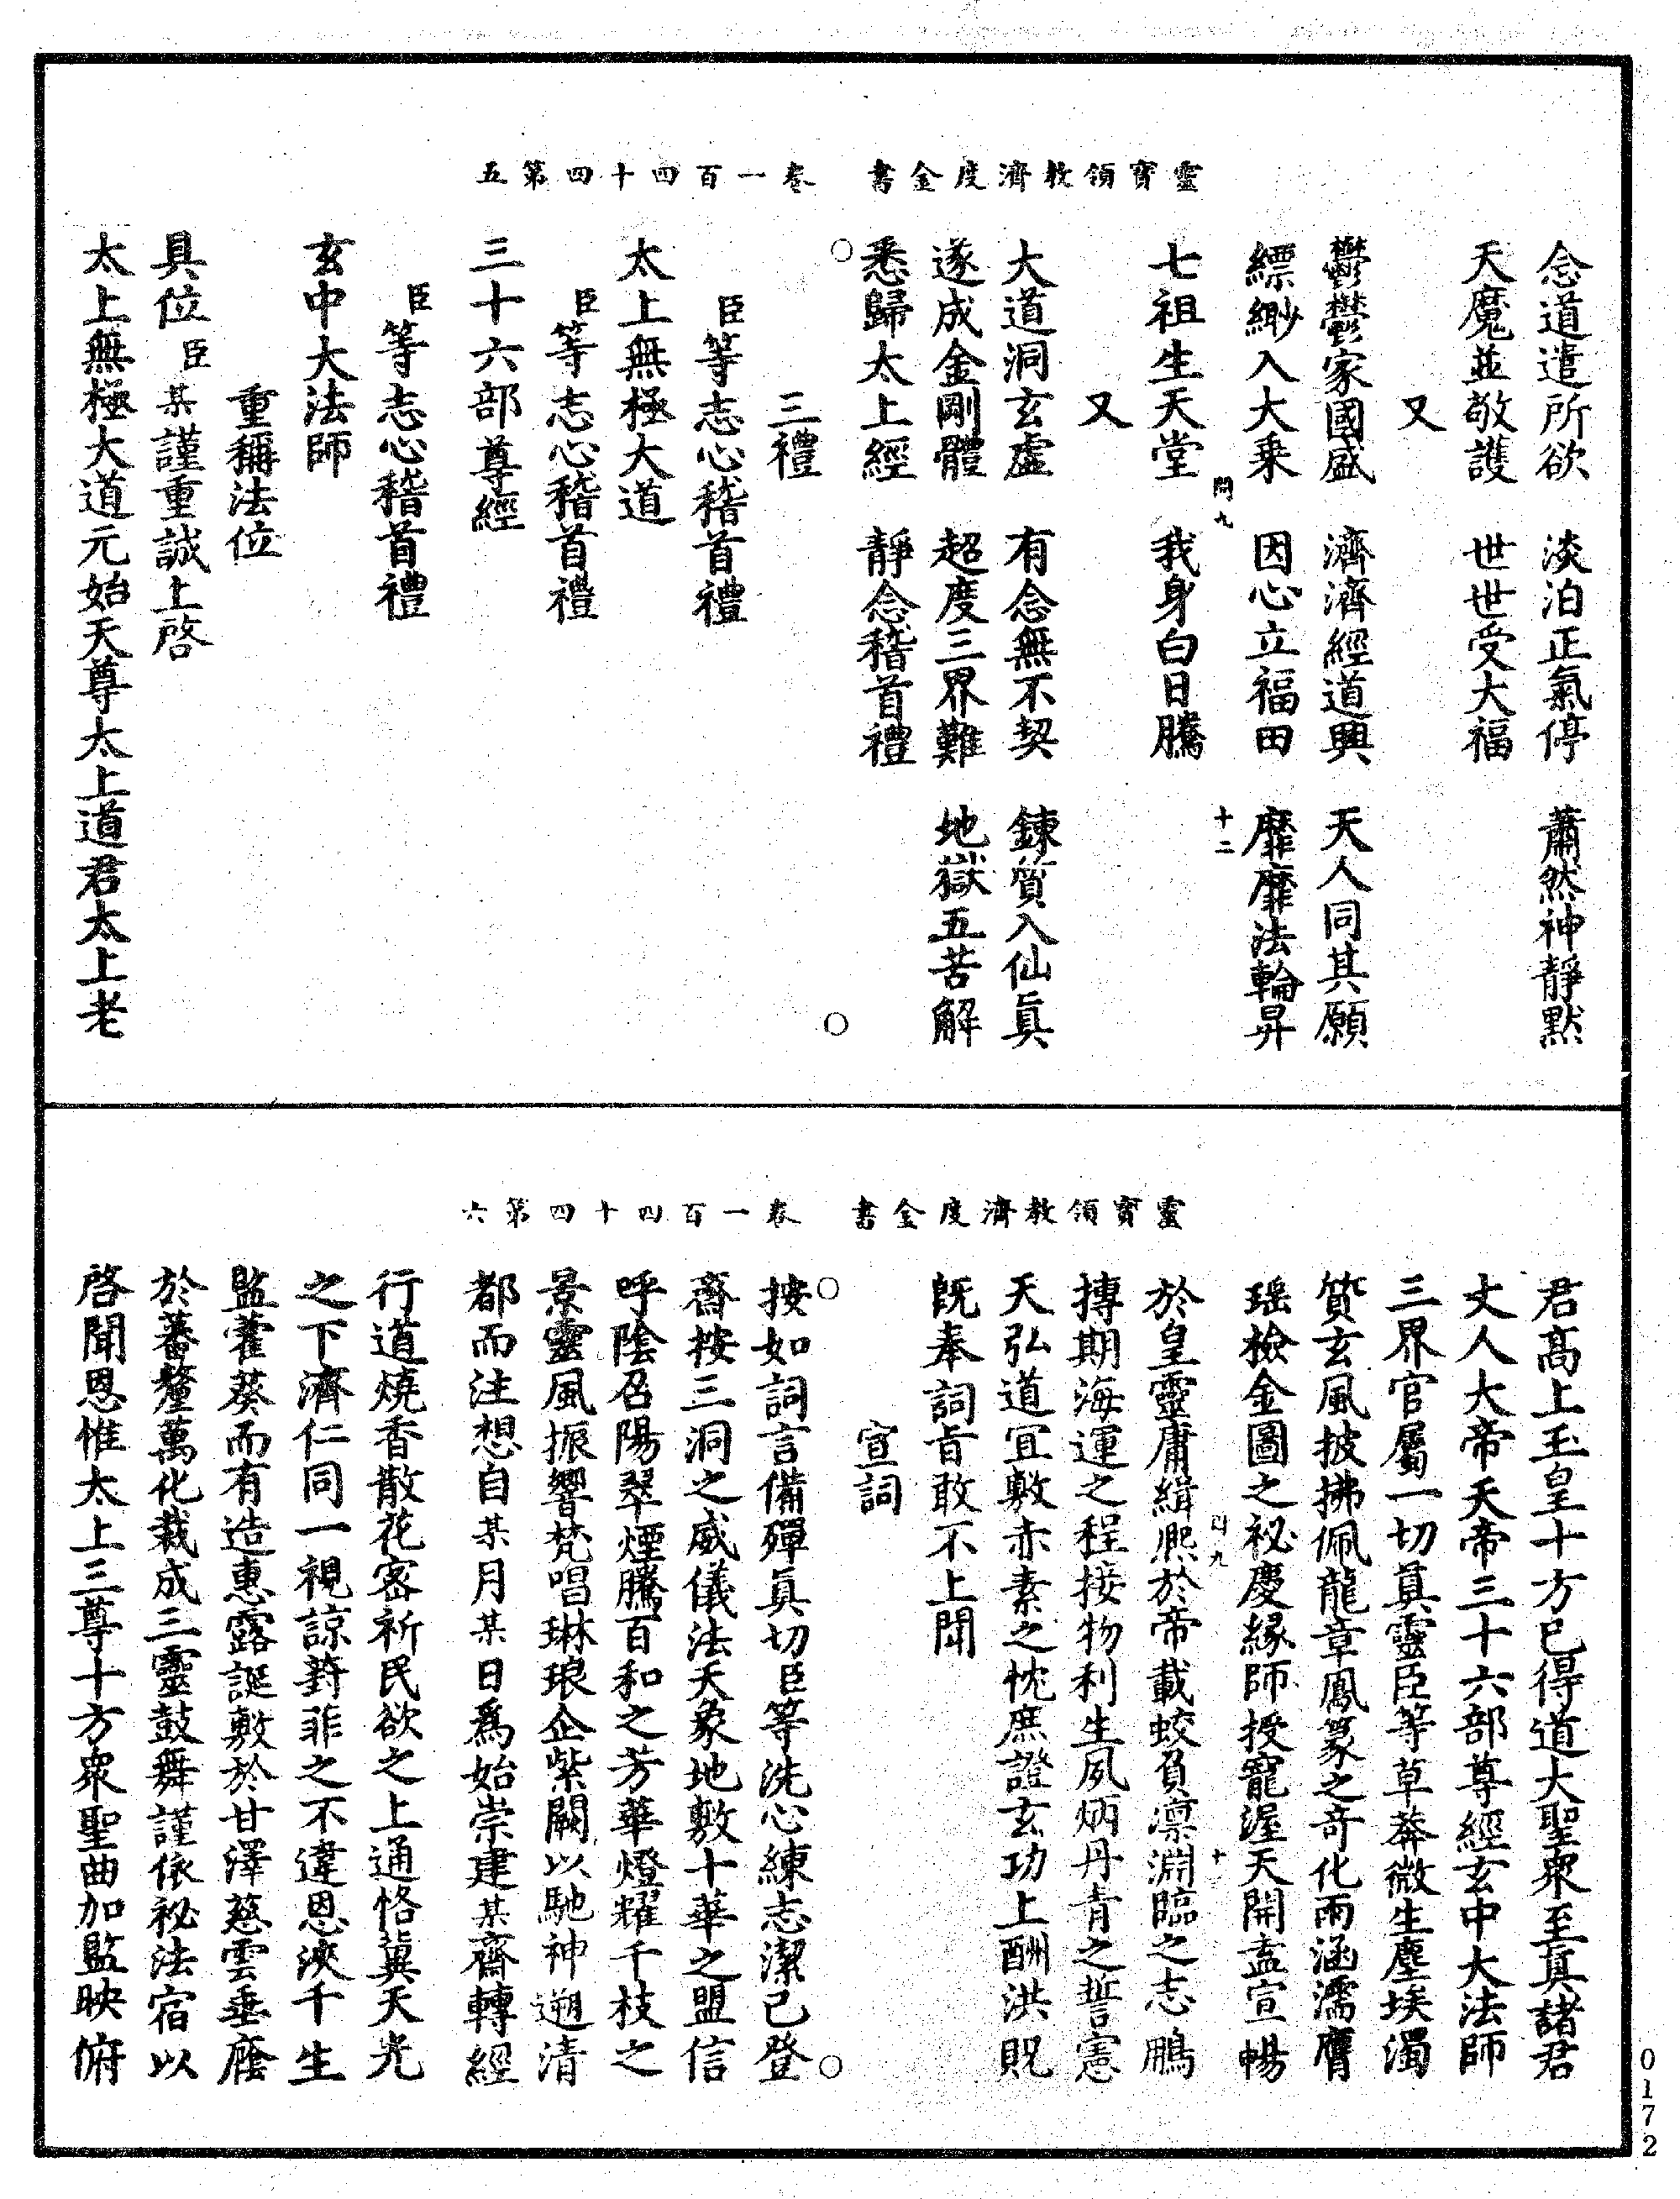 靈寶領教濟度金書　卷一百四十四第五
念道遣所欲　淡泊正氣停　蕭然神靜默
天魔並敬護　世世受大福
又
鬱鬱家國盛　濟濟經道興　天人同其願
縹緲入大乗　因心立福田　靡靡法輪昇
問九　十二
七祖生天堂　我身白日騰
又
大道洞玄虛　有念無不契　鍊質入仙眞
遂成金剛體　超度三界難　地獄五苦解
悉歸太上經　靜念稽首禮
三禮
臣等志心稽首禮
太上無極大道
臣等志心稽首禮
三十六部尊經
臣等志心稽首禮
玄中大法師
重稱法位
具位臣某謹重誠上啓
太上無極大道元始天尊太上道君太上老
靈寶領教濟度金書　卷一百四十四第六
君高上玉皇十方已得道大聖衆至真諸君
丈人大帝天帝三十六部尊經玄中大法師
三界官屬一切真靈臣等草莽微生塵埃濁
質玄風披拂佩龍章鳳篆之奇化雨涵濡膺
瑶檢金圖之祕慶緣師授寵渥天開盍宣暢
於皇靈庸緝熈於帝載蛟負凛淵臨之志鵬
摶期海運之程接物利生夙炳丹青之誓憲
天弘道宜敷赤素之忱庶證玄功上酬洪貺
旣奉詞旨敢不上聞
宣詞
按如詞言備殫眞切臣等洗心練志潔己登
齋按三洞之威儀法天象地敷十華之盟信
呼陰召陽翠煙騰百和之芳華燈耀千枝之
景靈風振響梵唱琳琅企紫闕以馳神遡清
都而注想自某月某日爲始崇建某齋轉經
行道燒香散花客祈民欲之上通恪冀天光
之下濟仁同一視諒葑菲之不違恩浹千生
監藿葵而有造惠露誕敷於甘澤慈雲垂廕
於蕃釐萬化栽成三靈鼓舞謹依祕法宿以
啓聞恩惟太上三尊十方衆聖曲加監映俯
0172